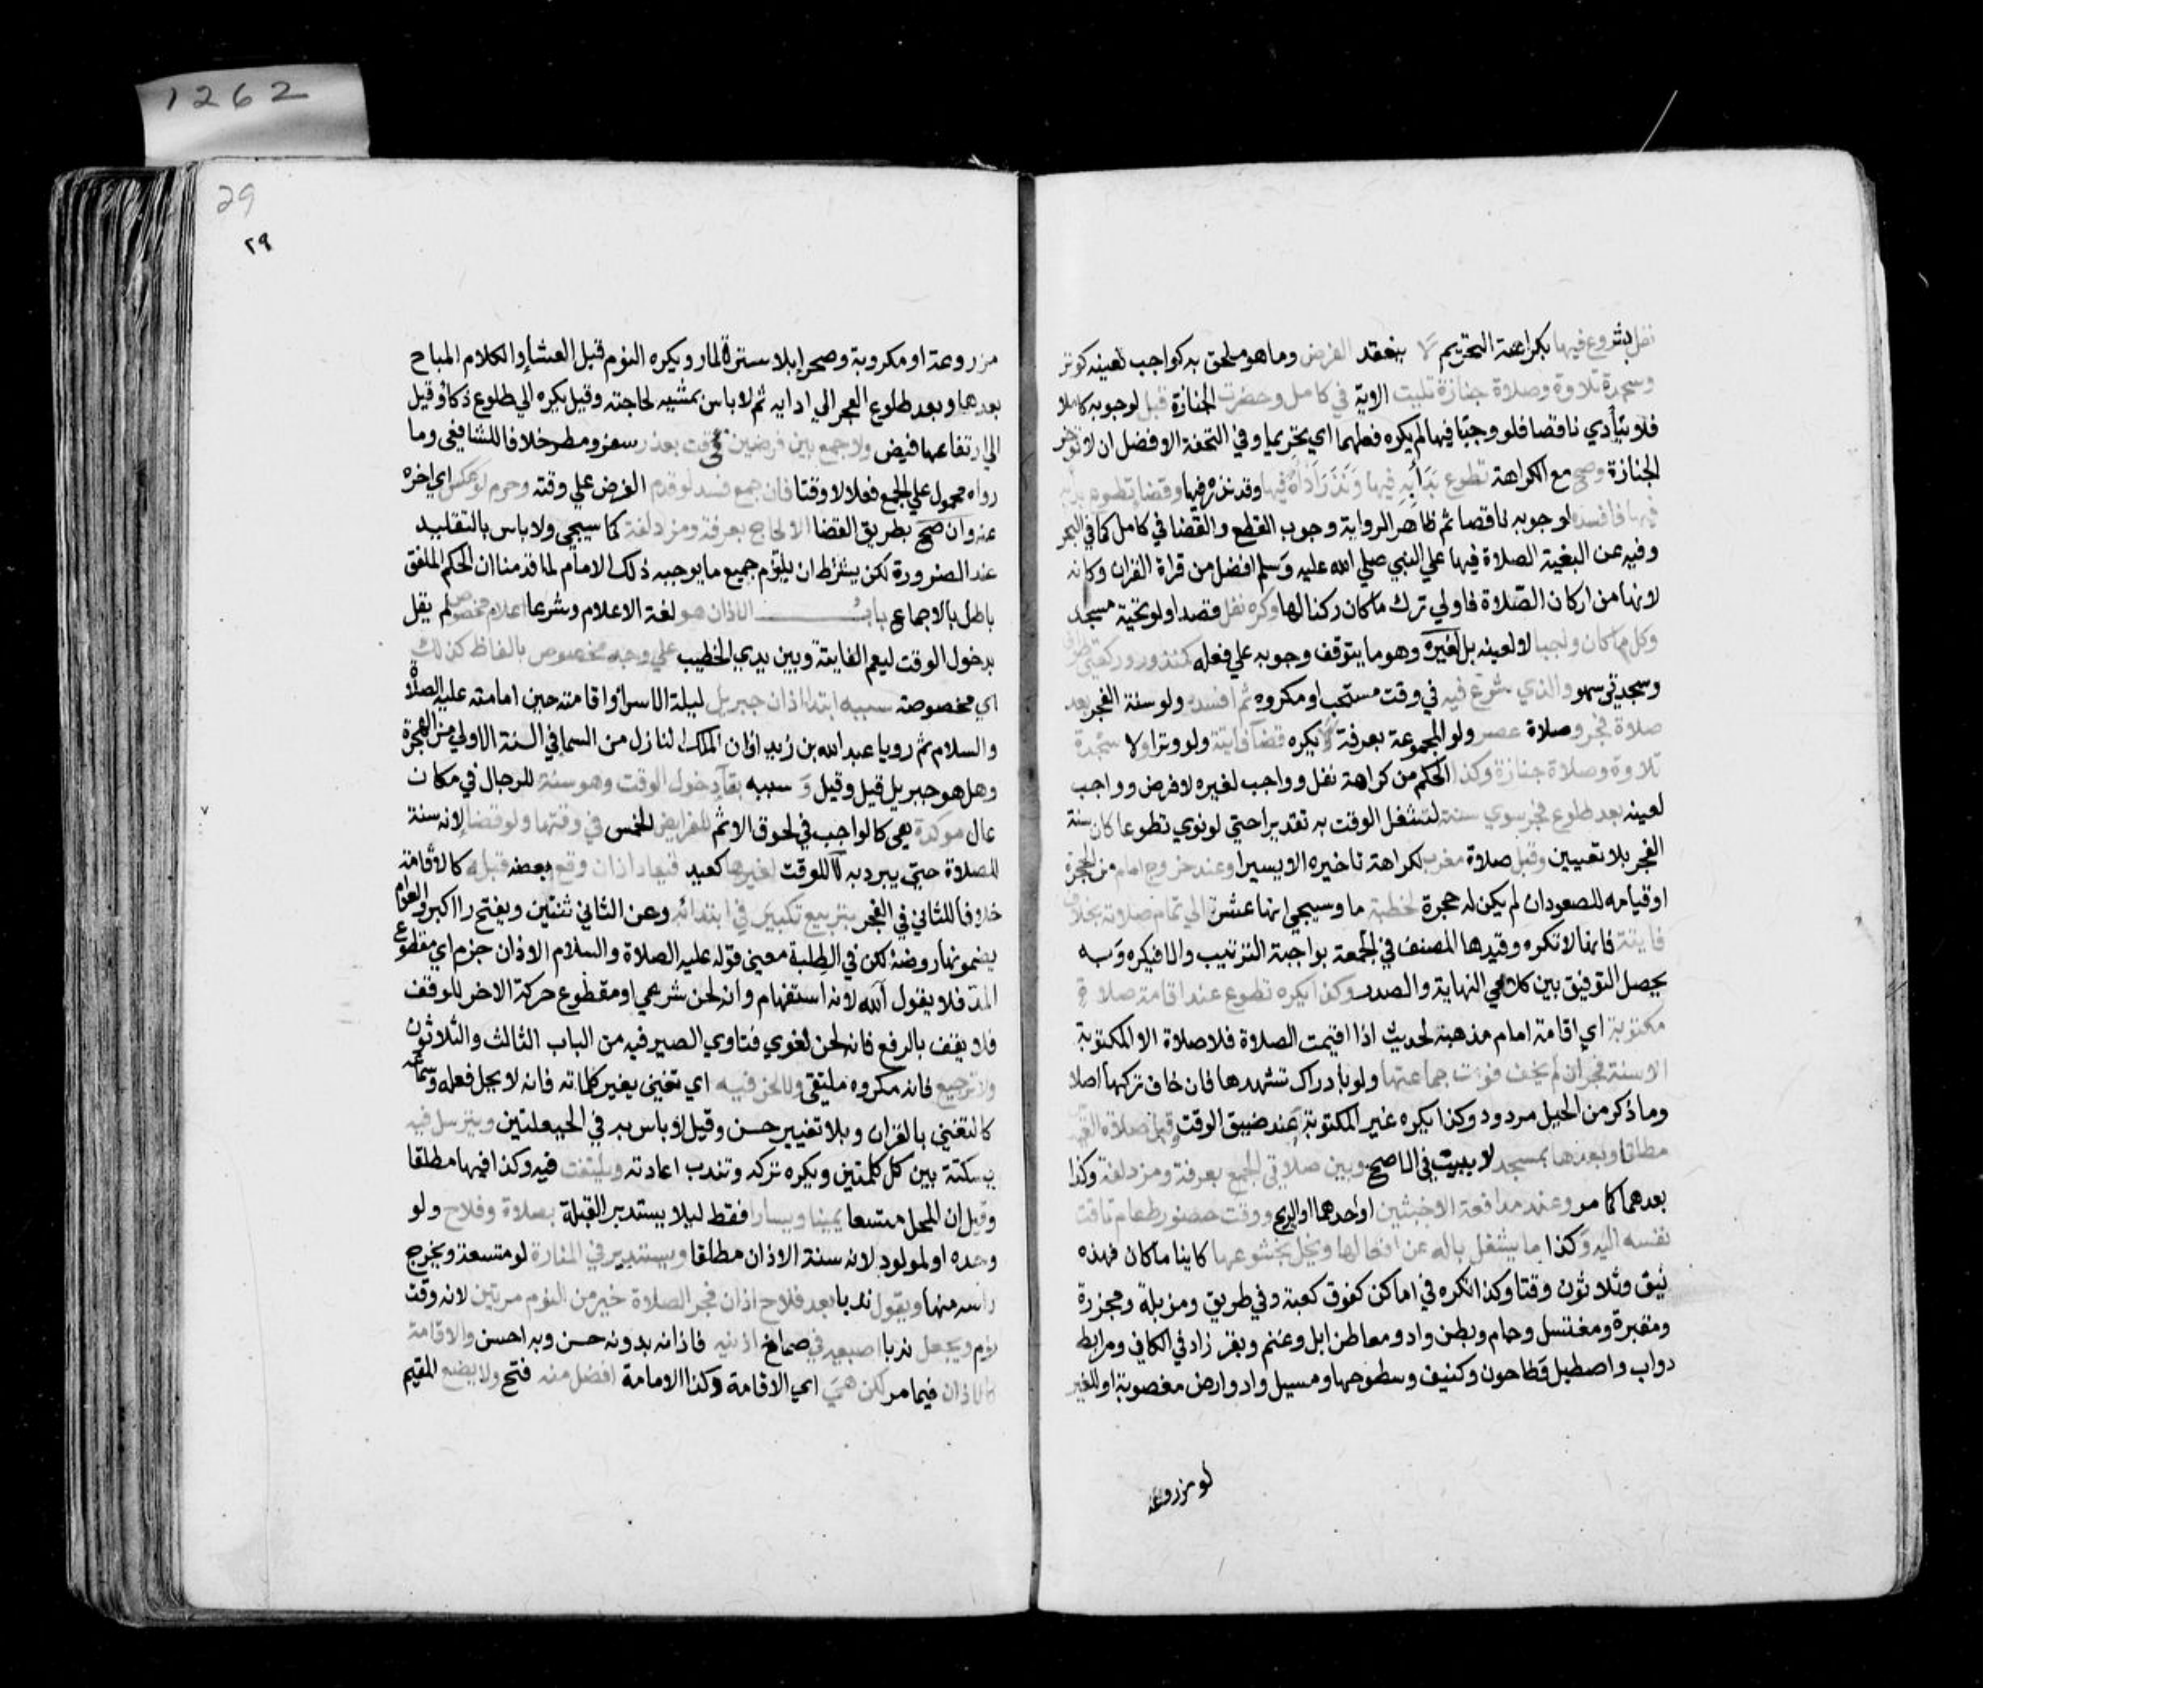 نفل بشروع فيها بكراهة التحريم لا ينعقد الفرض وما هو ملحق به كواجب لعينه كوتر
وسجدة تلاوة وصلاة جنازة تليت الاية في كامل وحضرت الجنازة قبل لوجوبه كاملا
فلا يتأدي ناقصا فلو وجبتا فيها لم يكره فعلهما اي تحريما وفي التحفة الافضل ان لا تؤخر
الجنازة وصح مع الكراهة تطوع بَدَأبِهِ فيها وَنَذَرَ أداه فيها وقد نذره فيها وقضا تطوع بدابه
فيها فافسده لوجوبه ناقصا ثم ظاهر الرواية وجوب القطع والقضا في كامل كما في البحر
وفيه عن البغية الصلاة فيها علي النبي صلي الله عليه وسلم افضل من قراة القران وكانه
لانها من اركان الصلاة فاولي ترك ما كان ركنا لها وكره نفل قصدا ولو تحية مسجد
وكل ما كان واجبا لا لعينه بل لغيره وهو ما يتوقف وجوبه علي فعله كمنذور وركعتي طواف
وسجدتي سهو والذي شرع فيه في وقت مستحب او مكروه ثم افسده ولو سنة الفجر بعد
صلاة فجر وصلاة عصر ولو المجموعة بعرفة لا يكره قضآ فايتة ولو وترا ولا سجدة
تلاوة وصلاة جنازة وكذا الحكم من كراهة نفل وواجب لغيره لا فرض وواجب
لعينه بعد طلوع فجر سوي سنته لشغل الوقت به تقديرا حتي لو نوي تطوعا كان سنة
الفجر بلا تعيين وقبل صلاة مغرب لكراهة تاخيره الا يسيرا وعند خروج امام من الحجرة
او قيامه للصعود ان لم يكن له حجرة لخطبة ما وسيجي انها عشر الي تمام صلاته بخلاف
فايتة فانها لا تكره وقيدها المصنف في الجمعة بواجبة الترتيب والا فيكره وبه
يحصل التوفيق بين كلامي النهاية والصدر وكذا يكره تطوع عند اقامة صلاة
مكتوبة اي اقامة امام مذهبه لحديث اذا اقيمت الصلاة فلا صلاة الا المكتوبة
الا سنة فجر ان لم يخف فوت جماعتها ولو بادراك تشهدها فان خاف تركها اصلا
وما ذكر من الحيل مردود وكذا يكره غير المكتوبة عند ضيق الوقت وقبل صلاة العيد
مطلقا وبعدها بمسجد لا ببيت في الاصح وبين صلاتي الجمع بعرفة ومزدلفة وكذا
بعدهما كما مر وعند مدافعة الاخبثين او احدهما او الريح ووقت حضور طعام تاقت
نفسه اليه وكذا ما يشغل باله عن افعالها ويخل بخشوعها كاينا ما كان فهذه
نيق وثلاثون وقتا وكذا تكره في اماكن كفوق كعبة وفي طريق ومزبلة ومجزرة
ومقبرة ومغتسل وحمام وبطن واد ومعاطن ابل وغنم وبقر زاد في الكافي ومرابط
دواب واصطبل وطاحون وكنيف وسطوحها ومسيل واد وارض مغصوبة او للغير
لو مزروعة
1262
29
٢٩
مزروعة او مكروبة وصحرا بلا سترة لمار ويكره النوم قبل العشا والكلام المباح
بعدها وبعد طلوع الفجر الي ادايه ثم لا باس بمشيه لحاجته وقيل يكره الي طلوع ذكا وقيل
الي ارتفاعها فيض ولا جمع بين فرضين في وقت بعذر سفر ومطر خلافا للشافعي وما
رواه محمول علي الجمع فعلا لا وقتا فان جمع فسد لو قدم الفرض علي وقته وحرم لو عكس اي اخره
عنه وان صح بطريق القضا الا لحاج بعرفة ومزدلفة كما سيجي ولا باس بالتقليد
عند الضرورة لكن يشترط ان يلتزم جميع ما يوجبه ذلك الامام لما قدمنا ان الحكم الملفق
باطل بالاجماع باب الاذان هو لغة الاعلام وشرعا اعلام مخصوص لم يقل
بدخول الوقت ليعم الفايتة وبين يدي الخطيب علي وجه مخصوص بالفاظ كذلك
اي مخصوصة سببه ابتدا اذان جبريل ليلة الاسرا واقامته حين امامته عليه الصلاة
والسلام ثم رويا عبد الله بن زيد اذان الملك النازل من السما في السنة الاولي من الهجرة
وهل هو جبريل قيل وقيل وَ سببه بقآ دخول الوقت وهو سنة للرجال في مكان
عال موكدة هي كالواجب في لحوق الاثم للفرايض الخمس في وقتها ولو قضا لانه سنة
للصلاة حتي يبرد به لا للوقت لغيرها كعيد فيعاد اذان وقع بعضه قبله كالاقامة
خلافا للثاني في الفجر بتربيع تكبير في ابتدائه وعن الثاني ثنتين وبفتح را اكبر والعوام
يضمونها روضة لكن في الطلبة معني قوله عليه الصلاة والسلام الاذان جزم اي مقطوع
المد فلا يقول آلله لانه استفهام وانه لحن شرعي او مقطوع حركة الاخر للوقف
فلا يقف بالرفع فانه لحن لغوي فتاوي الصيرفيه من الباب الثالث والثلاثون
ولا ترجيع فانه مكروه ملتقي ولا لحن فيه اي تغني بغير كلماته فانه لا يحل فعله وسماعه
كالتغني بالقران وبلا تغيير حسن وقيل لا باس به في الحيعلتين ويترسل فيه
بسكتة بين كل كلمتين ويكره تركه وتندب اعادته ويلتفت فيه وكذا فيها مطلقا
وقيل ان المحل متسعا يمينا ويسارا فقط ليلا يستدبر القبلة بصلاة وفلاح ولو
وحده او لمولود لانه سنة الاذان مطلقا ويستدير في المنارة لو متسعة ويخرج
راسه منها ويقول ندبا بعد فلاح اذان فجر الصلاة خير من النوم مرتين لانه وقت
نوم ويجعل ندبا اصبعيه في صماخ اذنيه فاذانه بدونه حسن وبه احسن والاقامة
كالاذان فيما مر لكن هي اي الاقامة وكذا الامامة افضل منه فتح ولا يضع المقيم